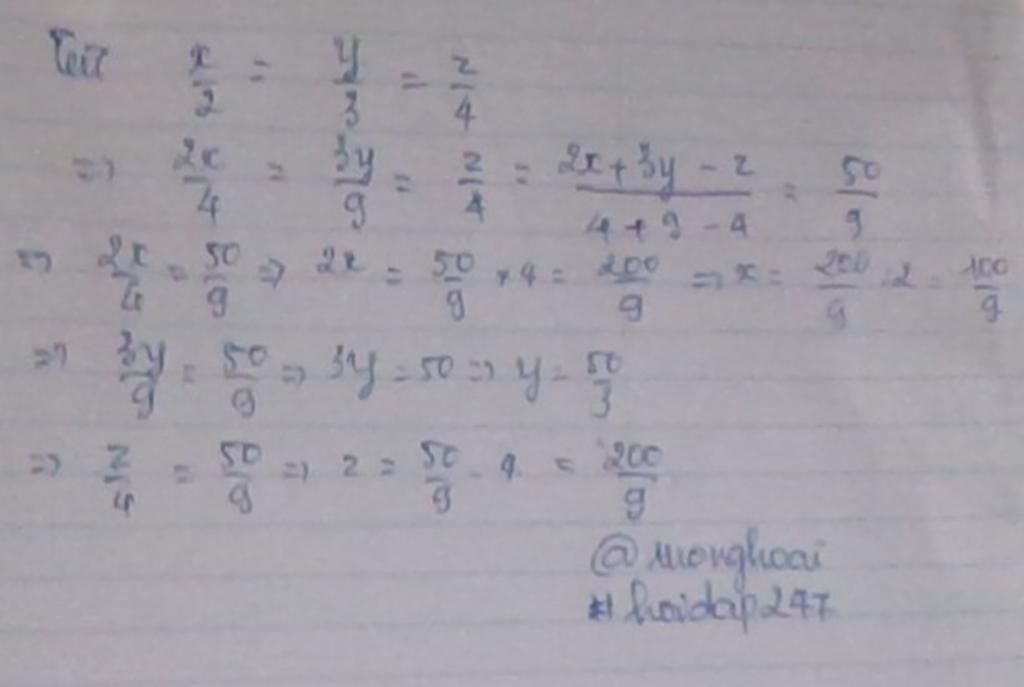 x/2 = y/3 = z/4
=> 2x/4 = 3y/9 = z/4 = (2x + 3y - z)/(4 + 9 - 4) = 50/9
=> 2x/4 = 50/9 => 2x = 50/9 . 4 = 200/9 => x = 200/9 : 2 = 100/9
=> 3y/9 = 50/9 => 3y = 50 => y = 50/3
=> z/4 = 50/9 => z = 50/9 . 4 = 200/9
#hoidap247